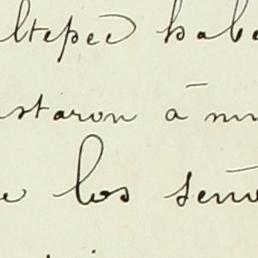 ltepec habe
staron á mi
e los seño